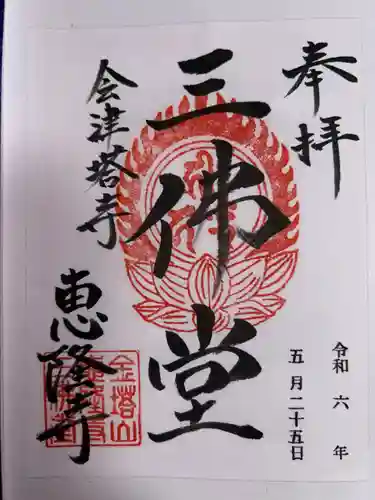 奉拝
令和六年
五月二十五日
三佛堂
会津塔寺
恵隆寺
金塔山